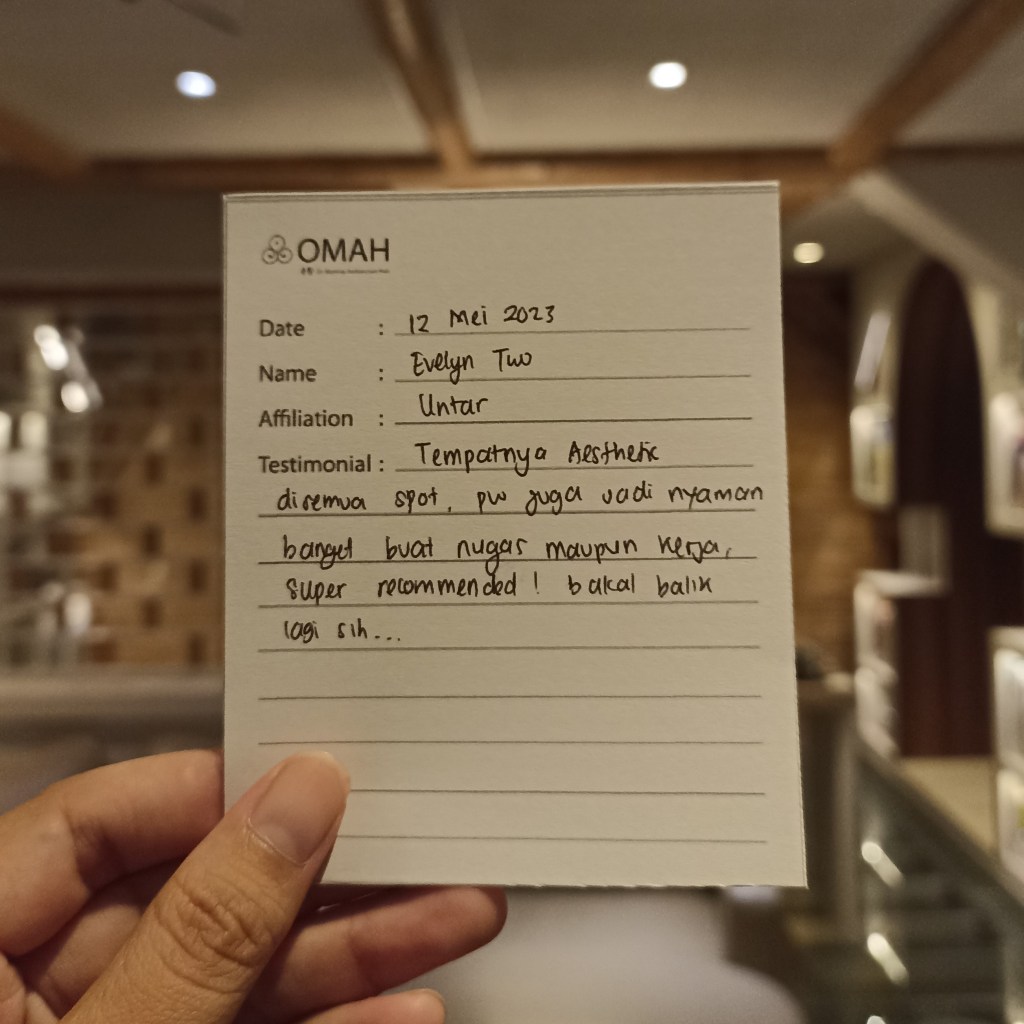 OMAH
Date : 12 Mei 2023
Name : Evelyn Two
Affiliation : Untar
Testimonial : Tempatnya Aesthetic
disemua spot, pw juga jadi nyaman
banget buat nugas maupun kerja,
super recommended! bakal balik
lagi sih...